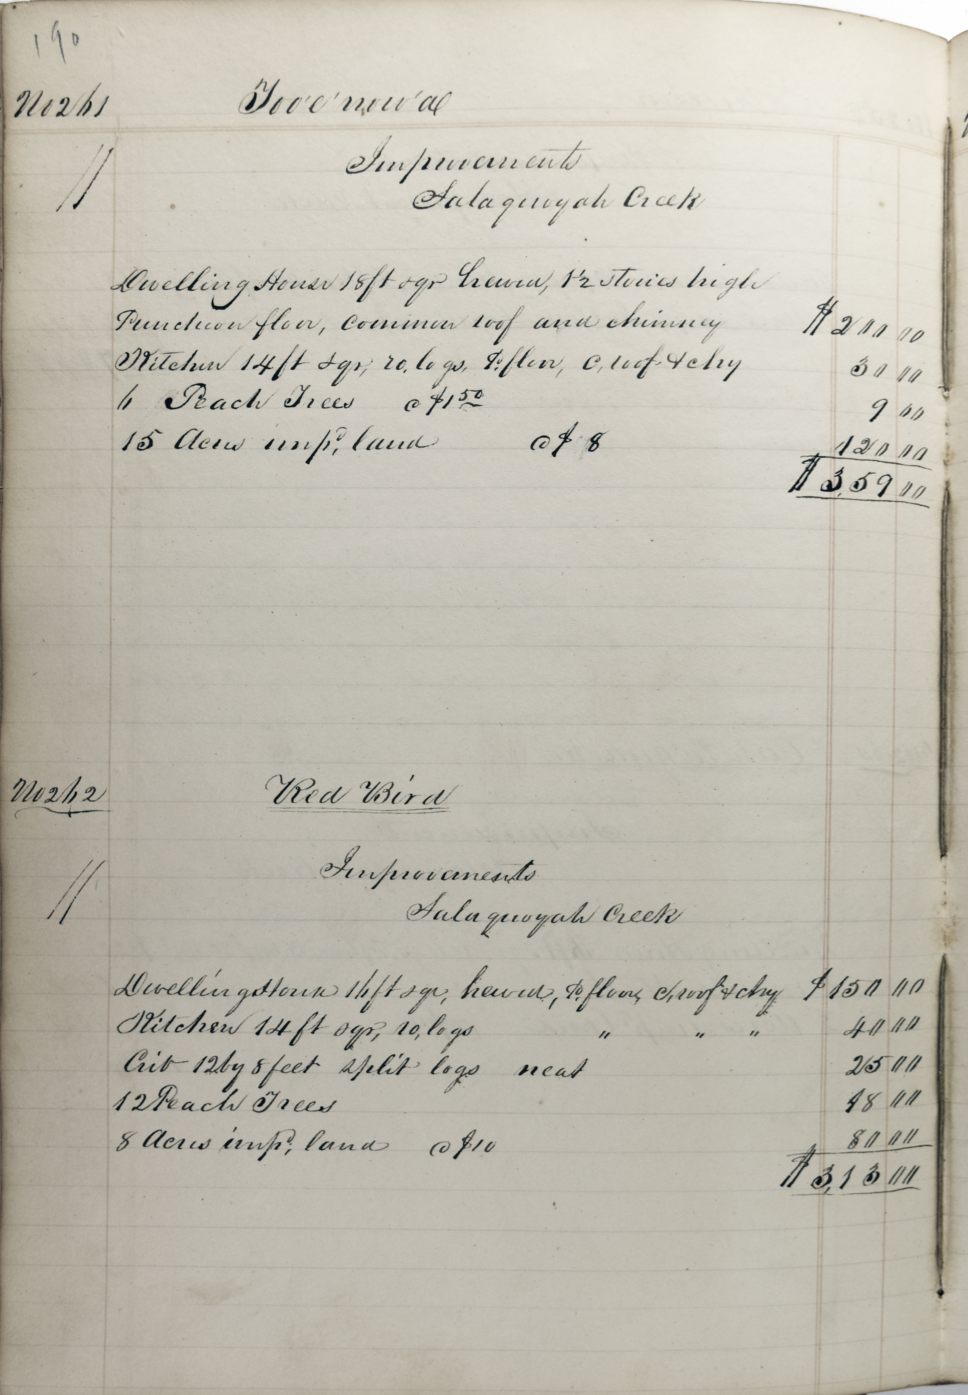 190
No 261 Too'e'now'ae
Improvements
Salaquoyah Creek
Dwelling House 18ft sqr hewed, 1½ stories high
Puncheon floor, common roof and chimney $200 00
Kitchen 14ft sqr, ro, logs, P. floor, c, roof & chy 30 00
6 Peach Trees @ $1 50 9 00
15 Acres impd, land @ $ 8 120 00
$359 00
No 262 Red Bird
Improvements
Salaquoyah Creek
Dwelling House 16ft sqr, hewed, P. floor, c, roof & chy $150 00
Kitchen 14ft sqr, ro, logs " " " 40 00
Crib 12 by 8 feet split logs neat 25 00
12 Peach Trees 18 00
8 Acres impd, land @ $10 80 00
$313 00